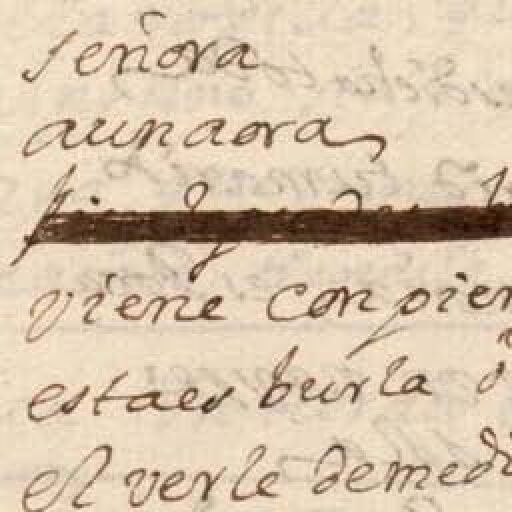 señora
aunaora
viene con pier
estaes burla
el verle demedi